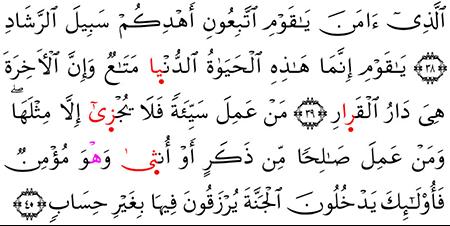 ٱلَّذِىٓ ءَامَنَ يَـٰقَوْمِ ٱتَّبِعُونِ أَهْدِكُمْ سَبِيلَ ٱلرَّشَادِ
﴿٣٨﴾ يَـٰقَوْمِ إِنَّمَا هَـٰذِهِ ٱلْحَيَوٰةُ ٱلدُّنْيا مَتَـٰعٌ وَإِنَّ ٱلْأَخِرَةَ
هِىَ دَارُ ٱلْقَرارِ ﴿٣٩﴾ مَنْ عَمِلَ سَيِّئَةً فَلَا يُجْزىٰٓ إِلَّا مِثْلَهَا ۖ
وَمَنْ عَمِلَ صَـٰلِحًا مِّن ذَكَرٍ أَوْ أُنثىٰ وَهْوَ مُؤْمِنٌ
فَأُو۟لَـٰٓئِكَ يَدْخُلُونَ ٱلْجَنَّةَ يُرْزَقُونَ فِيهَا بِغَيْرِ حِسَابٍ ﴿٤٠﴾